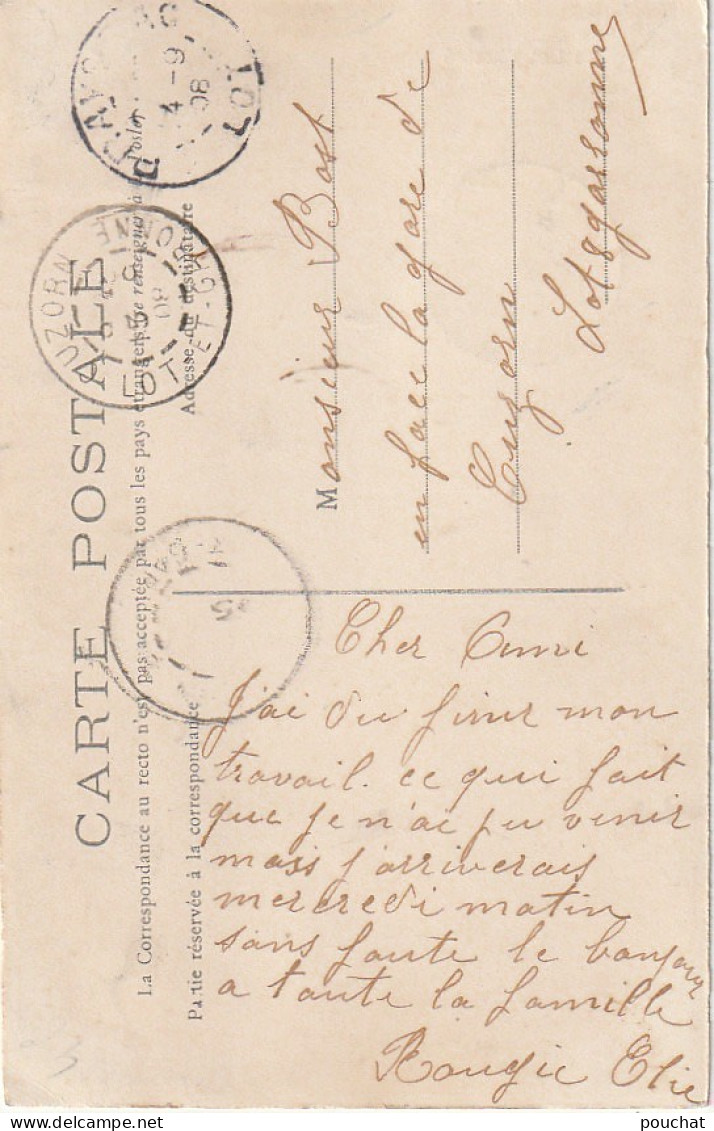 CARTE POSTALE
La Correspondance au recto n'est pas acceptée par tous les pays étrangers (se renseigner à la Poste)
Partie réservée à la correspondance
Adresse du destinataire
LOT
4 - 9
08
CUZORN
LOT-ET-GARONNE
Cher Ami
J'ai du finir mon
travail. ce qui fait
que je n'ai pu venir
mais j'arriverais
mercredi matin
sans faute le bonjour
a toute la famille
Rougie Elie
Monsieur Bost
en face la gare de
Cuzorn
Lot & garonne
pouchat